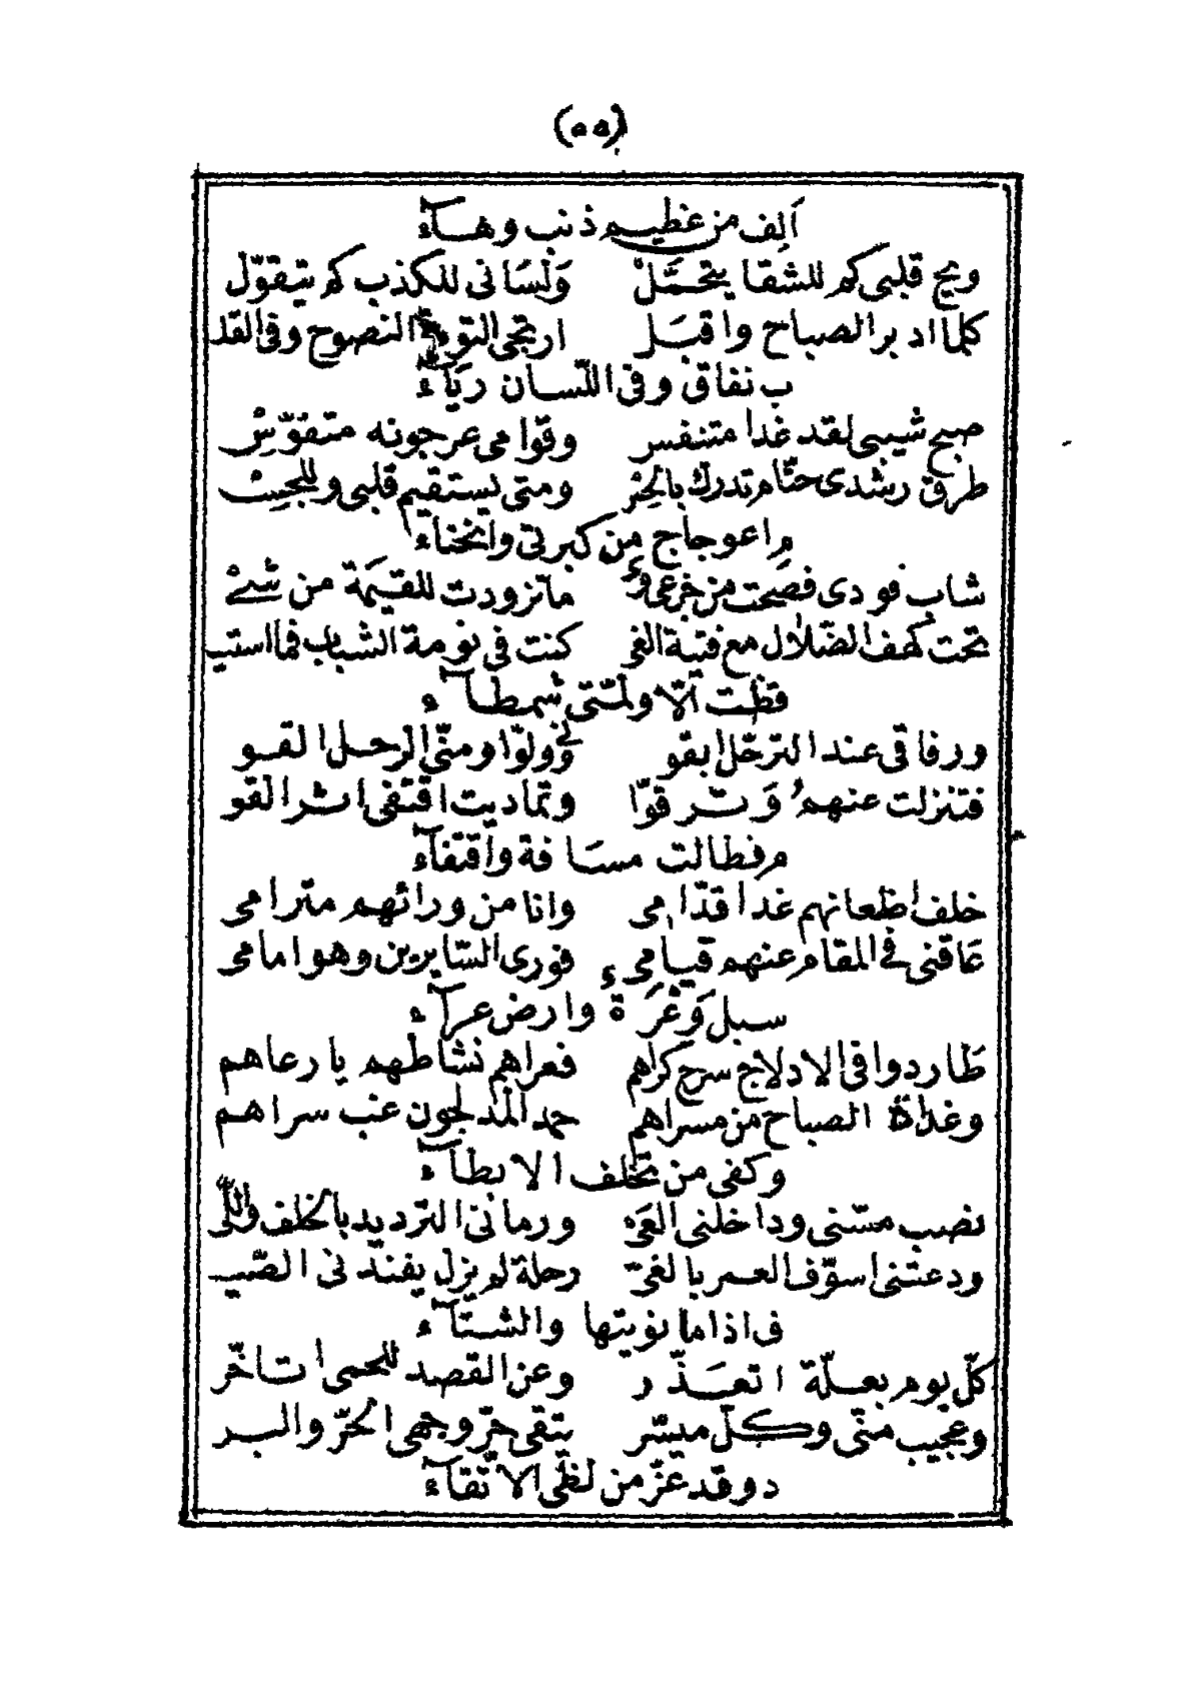 (٥٥)
ألف من عظيم ذنب وهآء
ويح قلبى كم للشقا يتحمّل ولسانى للكذب كم يتقوّل
كلما ادبر الصباح واقبل ارتجى التوبة النصوح وفى القلـ
ب نفاق وفى اللّسان ريآء
صبح شيبى لقد غدا متنفس وقوامى عرجونه متقوّس
طرق رشدى حتّام تدرك بالحز ومتى يستقيم قلبى وللجسـ
م اعوجاج من كبرتى وانحنآء
شاب فودى فصحت من خرعى وئ ما تزودت للقيمة من شئ
تحت كهف الضلال مع فتية الغى كنت فى نومة الشباب فما استيـ
قظت الّا ولمّتى شمطآء
ورفاقى عند الترحّل ابقو نى وولوّا ومنّى الرحل القو
فتنزلت عنهم وترقوّا وتماديت اقتفى اثر القو
م فطالت مسافة واقتفآء
خلف اظعانهم غدا قدّامى وانا من ورائهم مترامى
عاقنى فى المقام عنهم قيامى فورى السّايرين وهو امامى
سبل وعرة وارض عرآء
طاردوا فى الادلاج سرح كراهم فعراهم نشاطهم يا رعاهم
وغداة الصباح من مسراهم حمد المدلجون غب سراهم
وكفى من تخلف الابطآء
نصب مسّنى وداخلنى العىّ ورمانى الترديد بالخلف واللّى
ودعتنى اسوّف العمر بالغىّ رحلة لم يزل يفندنى الصّيـ
ف اذا ما نويتها والشتآء
كلّ يوم بعلّة اتعذّر وعن القصد للحمى اتاخّر
وعجيب منّى وكلّ ميسّر يتقى حرّ وجهى الحرّ والبر
د وقد عزّ من لظى الاتّقآء